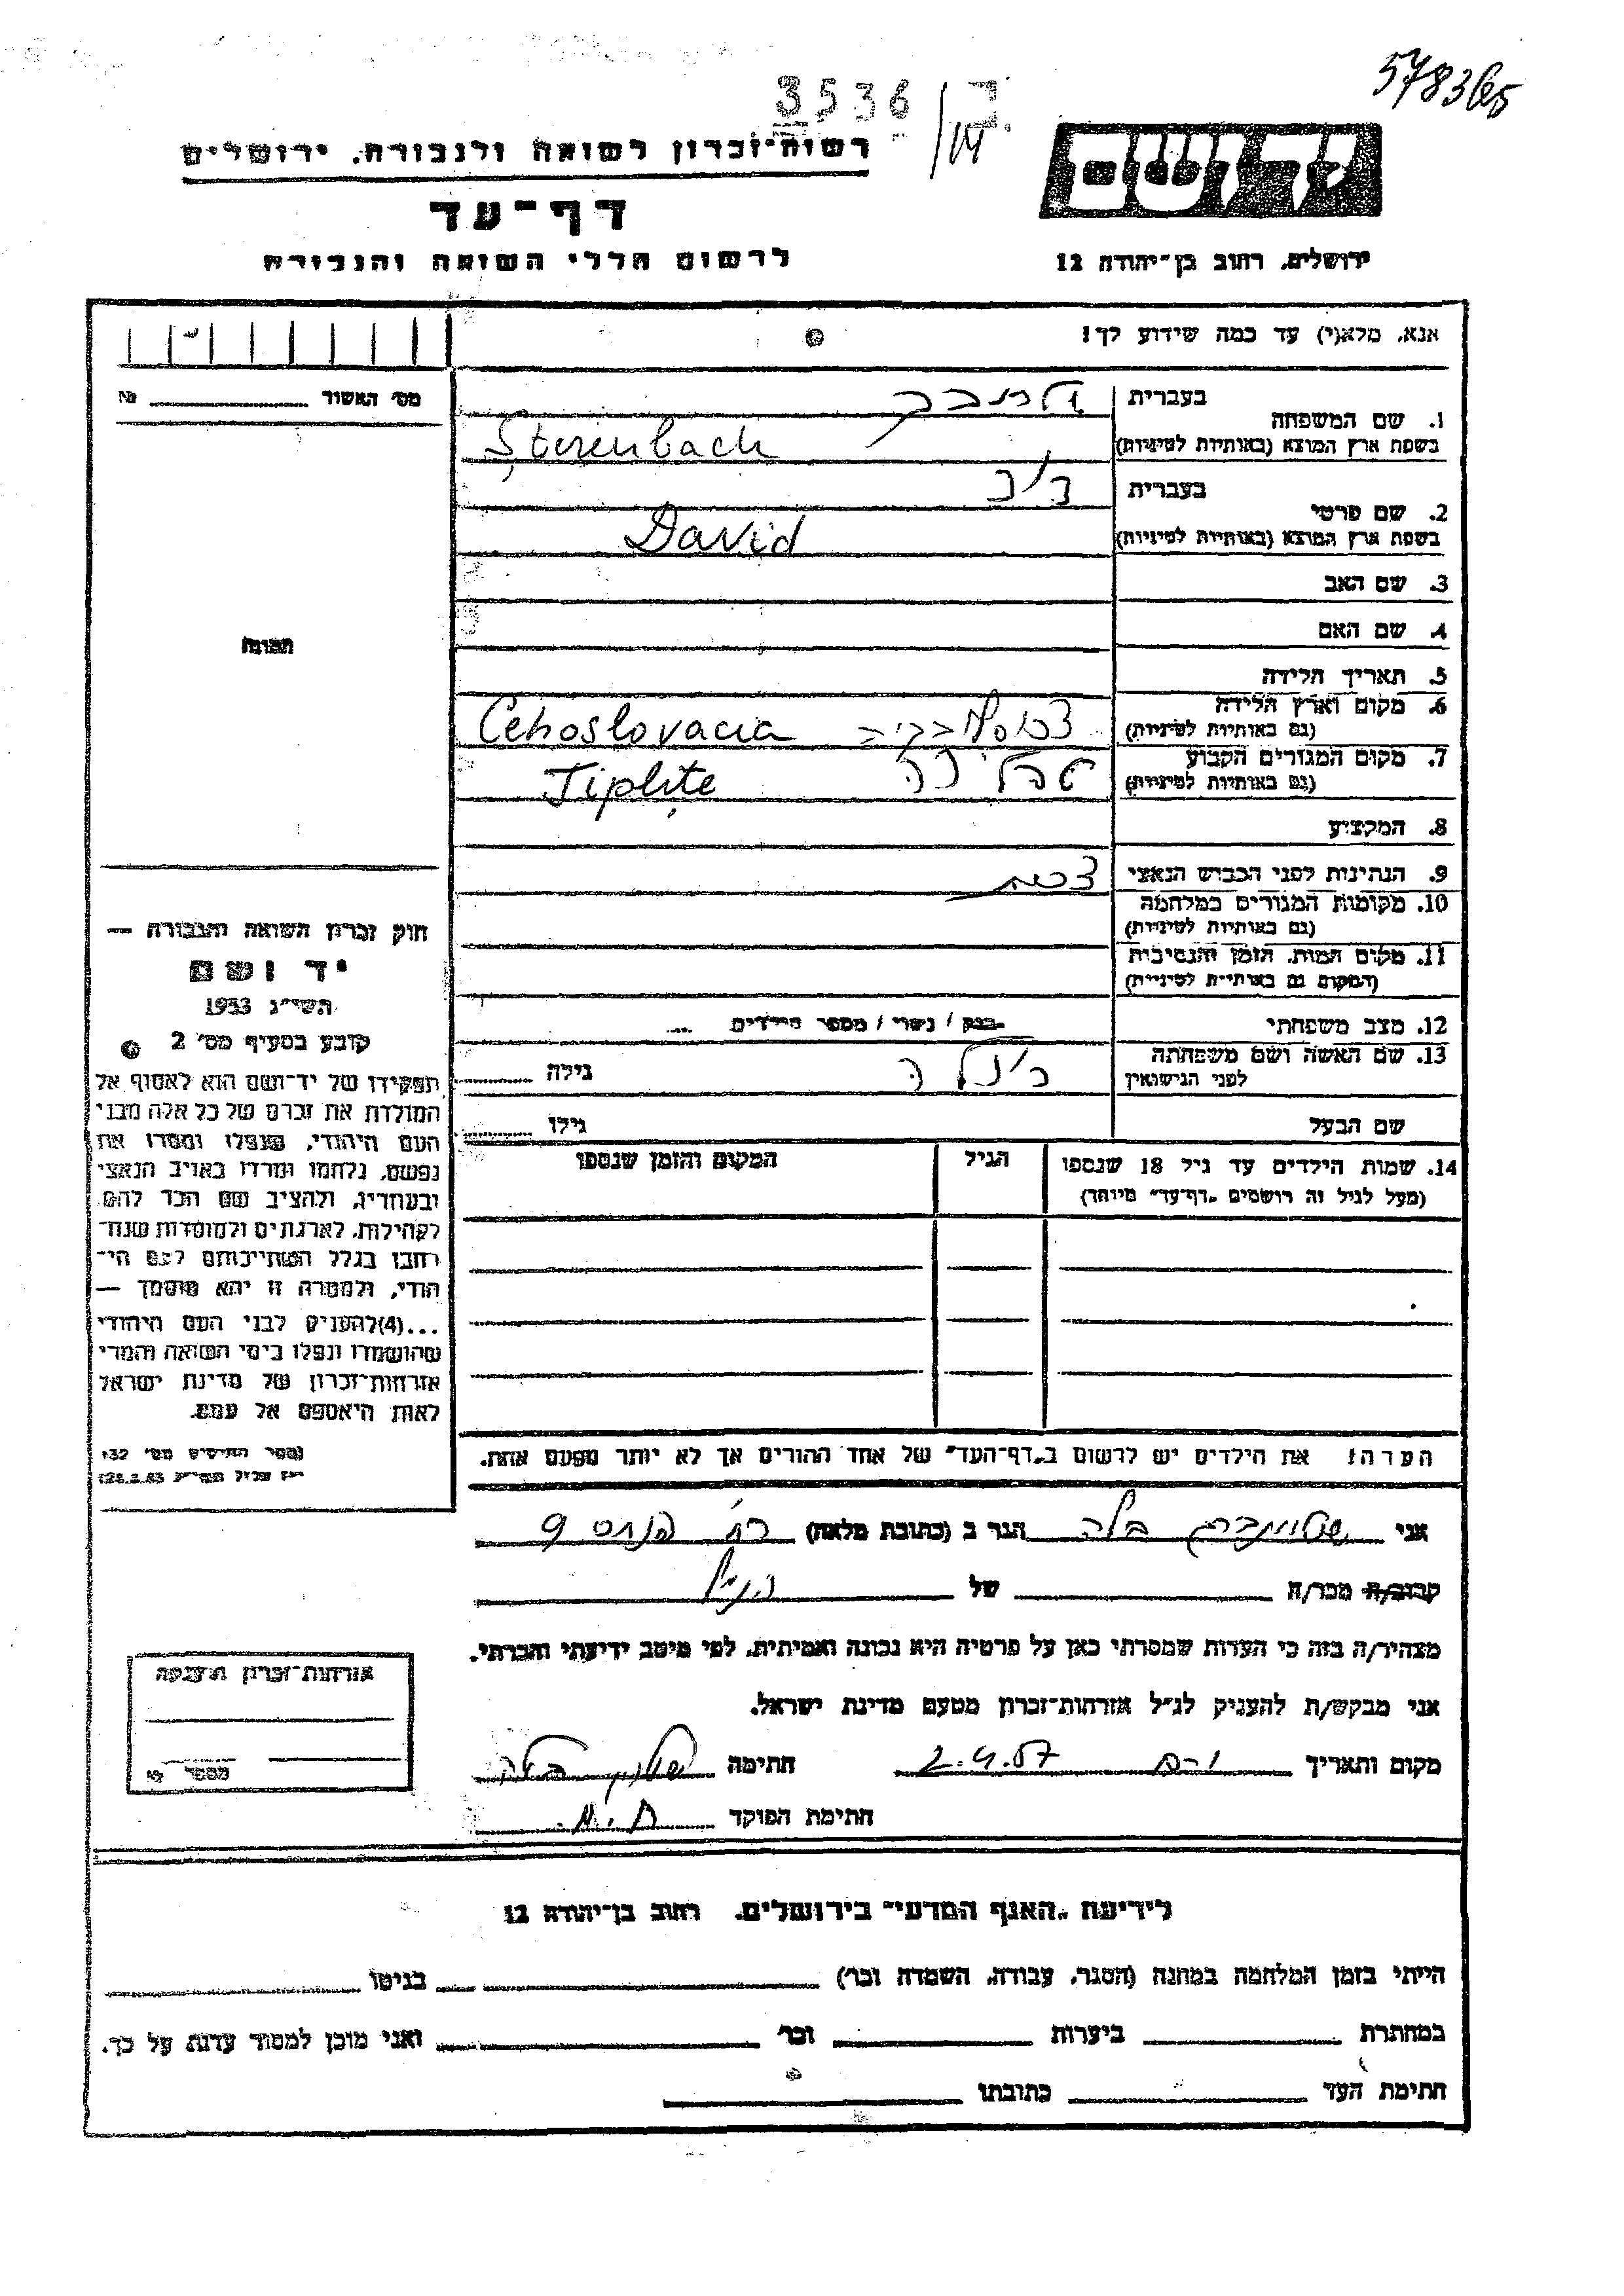 578365
3536
/14
רשות־זכרון לשואה ולגבורה, ירושלים
יד ושם
דף־עד
לרשום חללי השואה והגבורה
ירושלים, רחוב בן־יהודה 12
אנא, מלא(י) עד כמה שידוע לך!
מס׳ האשור № 
1. שם המשפחה
בעברית שטרנבך
בשפת ארץ המוצא (באותיות לטיניות) Șterenbach
2. שם פרטי
בעברית דוד
בשפת ארץ המוצא (באותיות לטיניות) David
3. שם האב
4. שם האם
תמונה
5. תאריך הלידה
6. מקום וארץ הלידה
(גם באותיות לטיניות) צכוסלובקיה Cehoslovacia
7. מקום המגורים הקבוע
(גם באותיות לטיניות) טפליצה Tiplițe
8. המקציע
9. הנתינות לפני הכבוש הנאצי צכית
10. מקומות המגורים במלחמה
(גם באותיות לטיניות)
11. מקום המות, הזמן והנסיבות
(המקום גם באותיות לטיניות)
12. מצב משפחתי רוק / נשוי / מספר הילדים
13. שם האשה ושם משפחתה
לפני הנישואין גילה
שם הבעל גילו
14. שמות הילדים עד גיל 18 שנספו הגיל המקום והזמן שנספו
(מעל לגיל זה רושמים „דף־עד״ מיוחד)
הערה! את הילדים יש לרשום ב„דף־העד״ של אחד ההורים אך לא יותר מפעם אחת.
חוק זכרון השואה והגבורה —
יד ושם
תשי״ג 1953
קובע בסעיף מס׳ 2
תפקידו של יד־ושם הוא לאסוף אל
המולדת את זכרם של כל אלה מבני
העם היהודי, שנפלו ומסרו את
נפשם, נלחמו ומרדו באויב הנאצי
ובעוזריו, ולהציב שם וזכר להם,
לקהילות, לארגונים ולמוסדות שנח־
רבו בגלל השתייכותם לעם הי־
הודי, ולמטרה זו יהא מוסמך —
...(4)להעניק לבני העם היהודי
שהושמדו ונפלו בימי השואה והמרי
אזרחות־זכרון של מדינת ישראל
לאות היאספם אל עמם.
אני בלה הגר ב (כתובת מלאה) רח׳ פנחס 9
קרוב/ה מכר/ה של הנ״ל
מצהיר/ה בזה כי העדות שמסרתי כאן על פרטיה היא נכונה ואמיתית, לפי מיטב ידיעתי והכרתי.
אני מבקש/ת להעניק לנ״ל אזרחות־זכרון מטעם מדינת ישראל.
מקום ותאריך י-ם 2.4.57 חתימה
חתימת הפוקד
אזרחות־זכרון הוענקה
מספר №
לידיעת „האגף המדעי״ בירושלים, רחוב בן־יהודה 12
הייתי בזמן המלחמה במחנה (הסגר, עבודה, השמדה וכו׳) בגיטו
במחתרת ביערות וכו׳ ואני מוכן למסור עדות על כך.
חתימת העד כתובתו